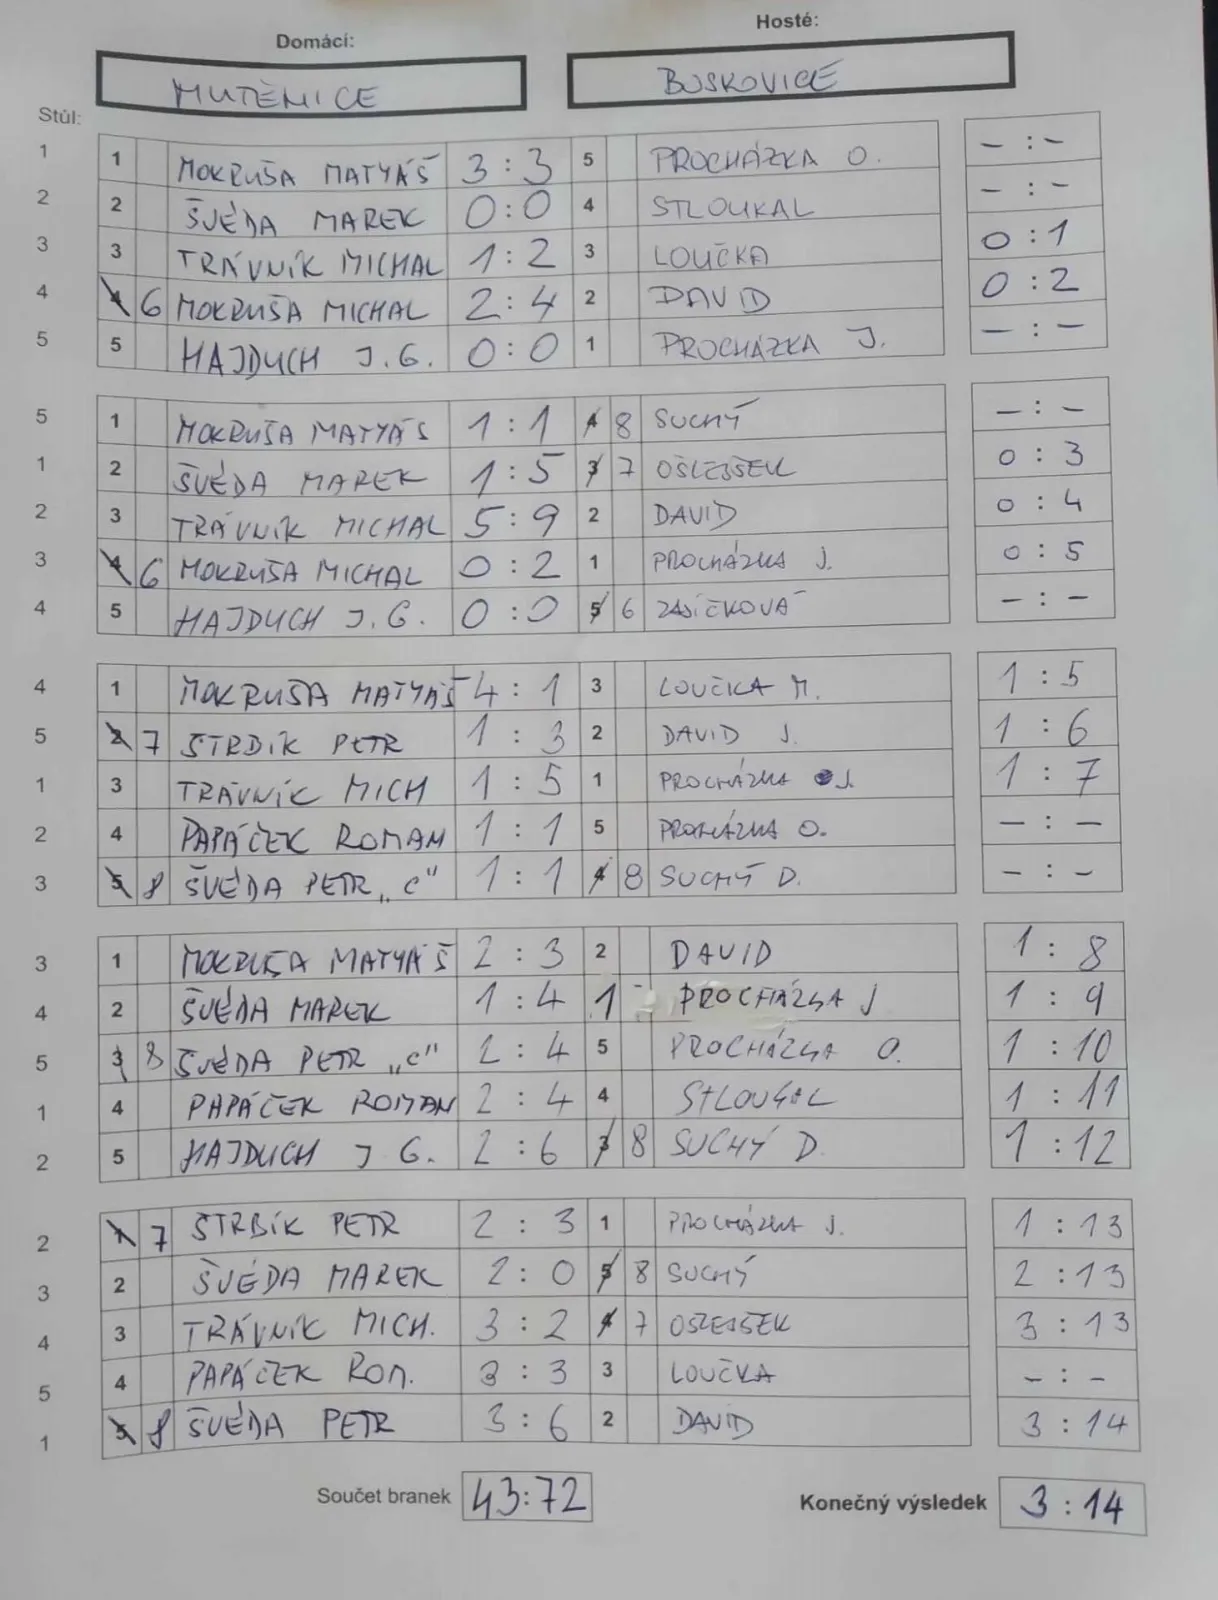 Domácí: Hosté:
MUTĚNICE BOSKOVICE
Stůl:
1 1 MOKRUŠA MATYÁŠ 3:3 5 PROCHÁZKA O. - : -
2 2 ŠVÉDA MAREK 0:0 4 STLOUKAL - : -
3 3 TRÁVNÍK MICHAL 1:2 3 LOUČKA 0:1
4 4 6 MOKRUŠA MICHAL 2:4 2 DAVID 0:2
5 5 HAJDUCH J.G. 0:0 1 PROCHÁZKA J. - : -
5 1 MOKRUŠA MATYÁŠ 1:1 4 8 SUCHÝ - : -
1 2 ŠVÉDA MAREK 1:5 3 7 OŠLEJŠEK 0:3
2 3 TRÁVNÍK MICHAL 5:9 2 DAVID 0:4
3 4 6 MOKRUŠA MICHAL 0:2 1 PROCHÁZKA J. 0:5
4 5 HAJDUCH J.G. 0:0 5 6 ZAJÍČKOVÁ - : -
4 1 MOKRUŠA MATYÁŠ 4:1 3 LOUČKA M. 1:5
5 2 7 STRBÍK PETR 1:3 2 DAVID J. 1:6
1 3 TRÁVNÍK MICH 1:5 1 PROCHÁZKA J. 1:7
2 4 PAPÁČEK ROMAN 1:1 5 PROCHÁZKA O. - : -
3 5 8 ŠVÉDA PETR „C" 1:1 4 8 SUCHÝ D. - : -
3 1 MOKRUŠA MATYÁŠ 2:3 2 DAVID 1:8
4 2 ŠVÉDA MAREK 1:4 1 PROCHÁZKA J 1:9
5 3 8 ŠVÉDA PETR „C" 2:4 5 PROCHÁZKA O. 1:10
1 4 PAPÁČEK ROMAN 2:4 4 STLOUKAL 1:11
2 5 HAJDUCH J G. 2:6 3 8 SUCHÝ D. 1:12
2 1 7 STRBÍK PETR 2:3 1 PROCHÁZKA J. 1:13
3 2 ŠVÉDA MAREK 2:0 5 8 SUCHÝ 2:13
4 3 TRÁVNÍK MICH. 3:2 4 7 OŠLEJŠEK 3:13
5 4 PAPÁČEK ROM. 3:3 3 LOUČKA - : -
1 5 8 ŠVÉDA PETR 3:6 2 DAVID 3:14
Součet branek 43:72 Konečný výsledek 3:14